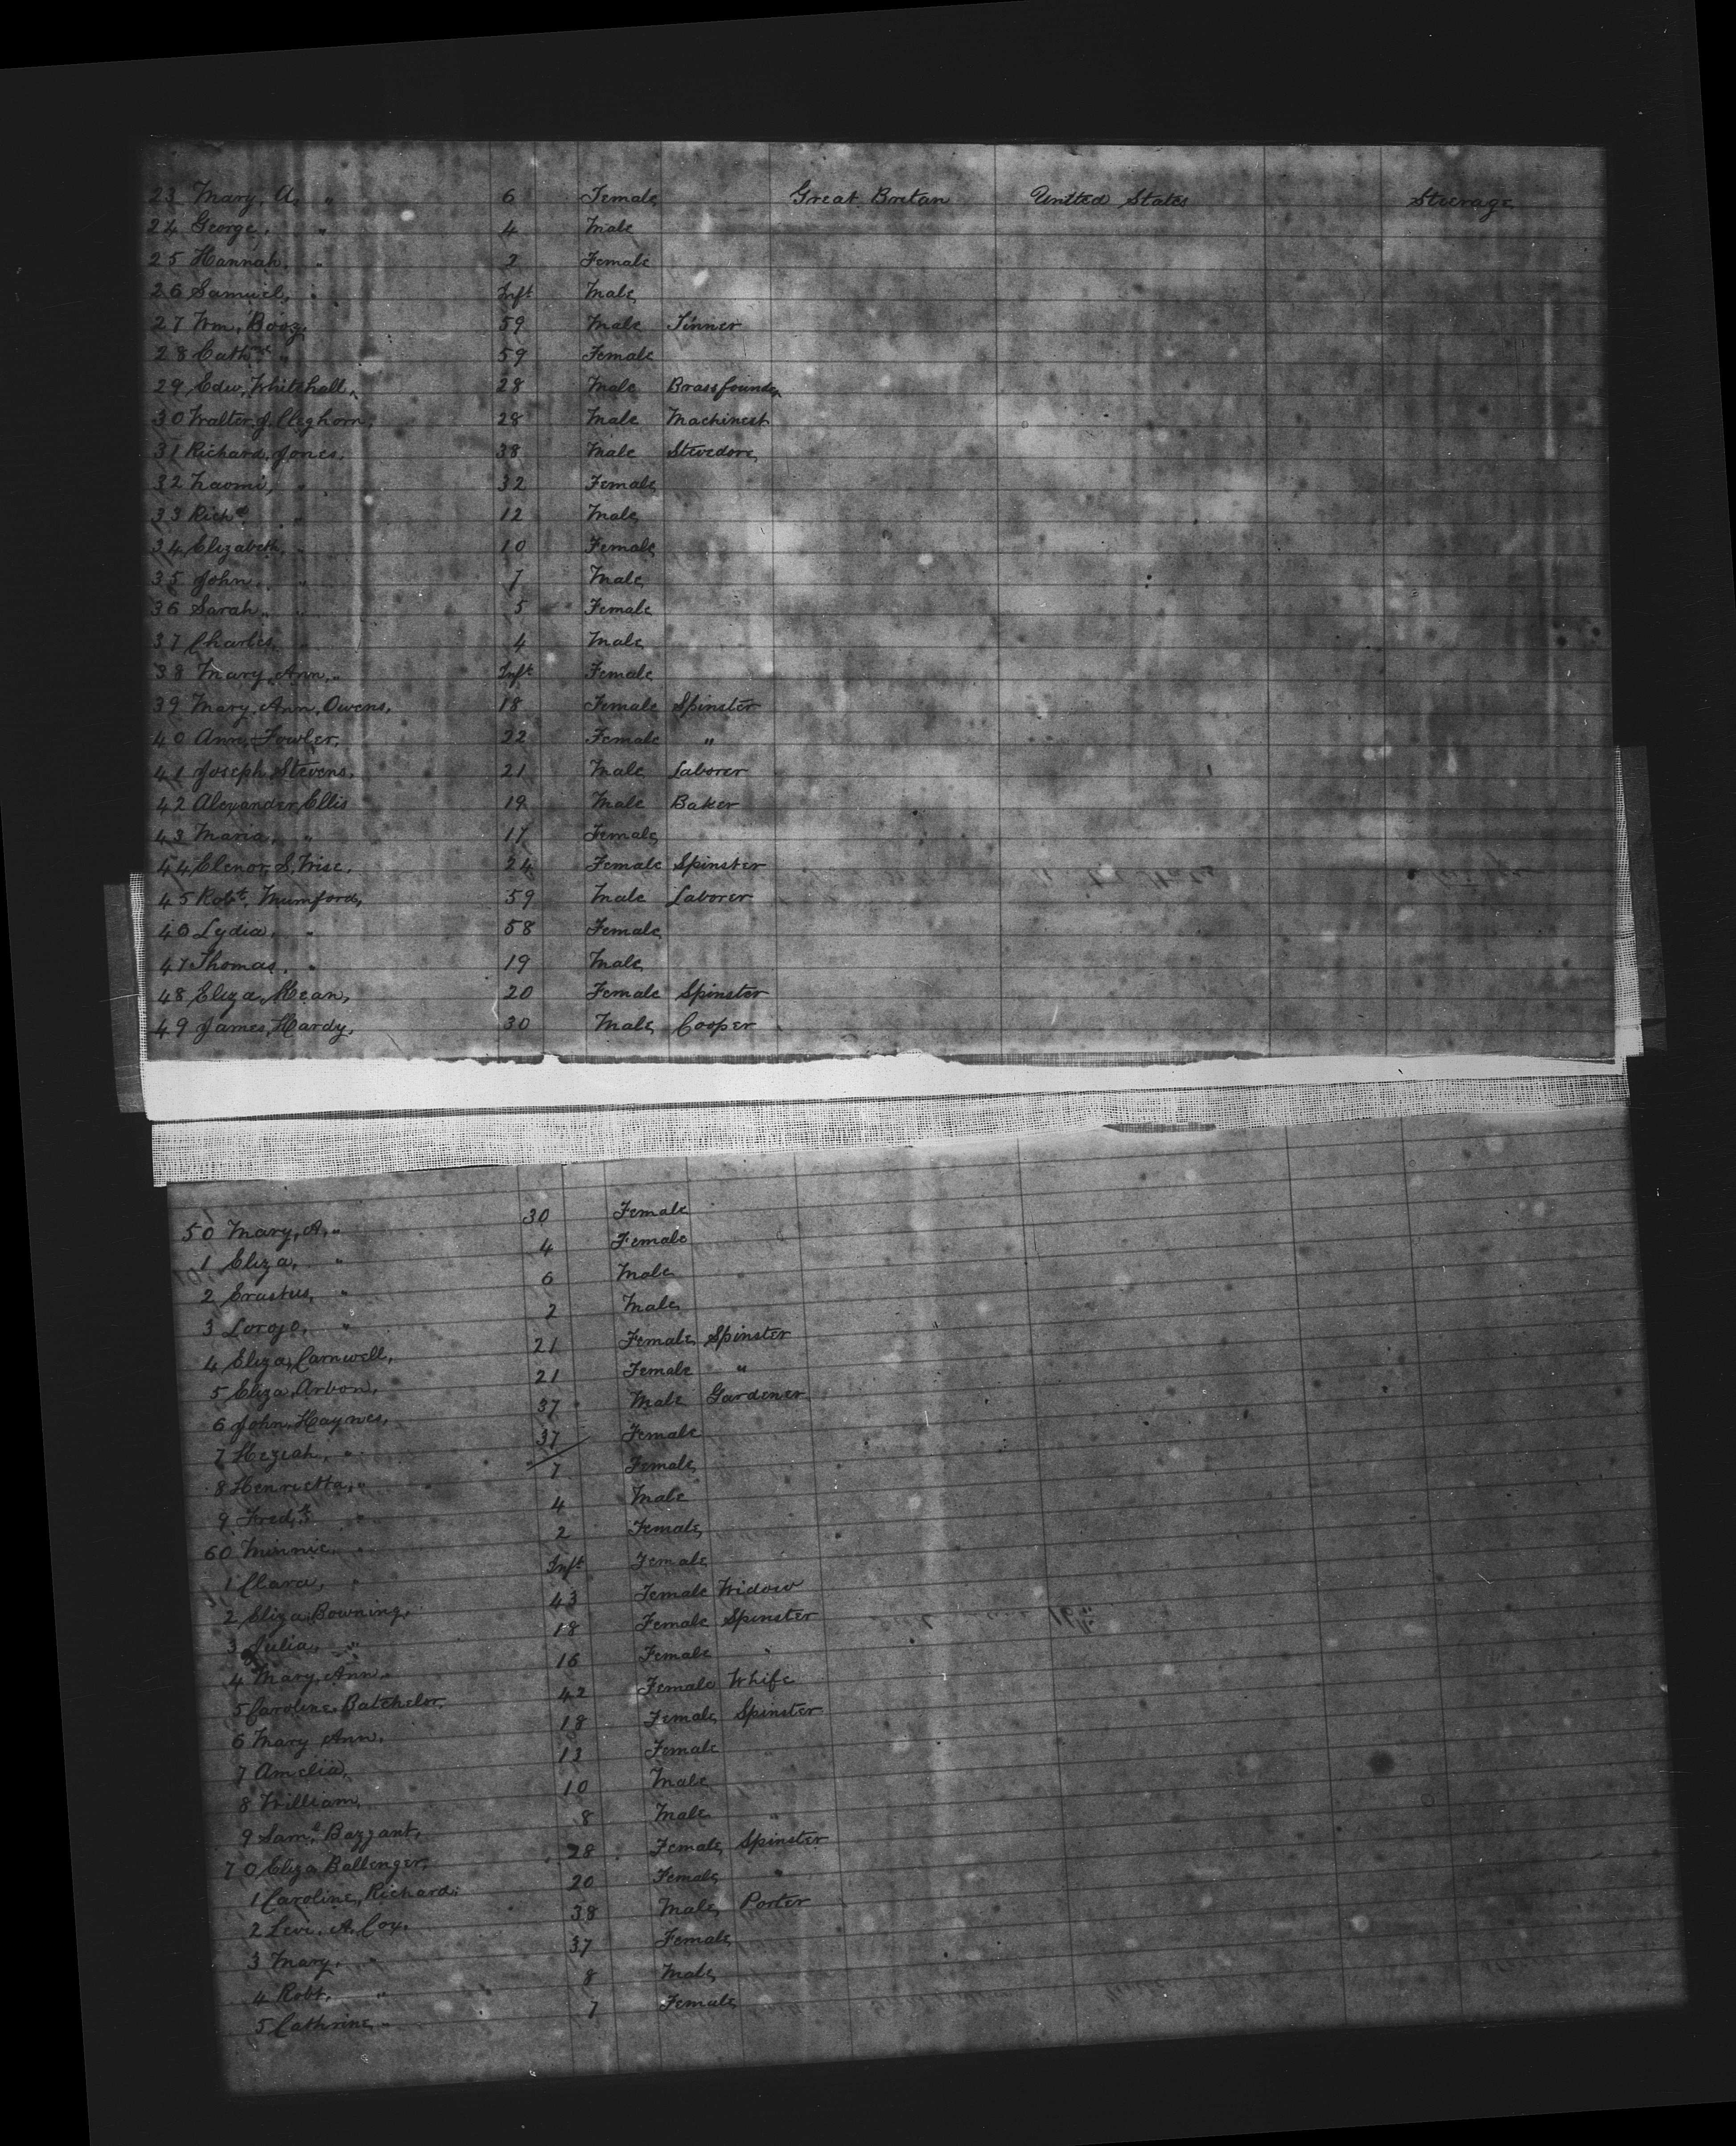 23 Mary, A. " 6 Female Great Bretan United States Steerage
24 George, " 4 Male
25 Hannah, " 2 Female
26 Samuel, " Inft Male
27 Wm, Booz, 59 Male Tinner
28 Cathne " 59 Female
29 Edw, Whitehall, 28 Male Brassfounder
30 Walter, J. Cleghorn, 28 Male Machinest
31 Richard, Jones, 38 Male Stevedore
32 Naomi, " 32 Female
33 Richd " 12 Male
34 Elizabeth, " 10 Female
35 John, " 7 Male
36 Sarah, " 5 Female
37 Charles, " 4 Male
38 Mary, Ann, " Inft Female
39 Mary, Ann, Owens, 18 Female Spinster
40 Ann, Fowler, 22 Female "
41 Joseph, Stevens, 21 Male Laborer
42 Alexander, Ellis 19 Male Baker
43 Maria, " 17 Female
44 Elenor, S. Wise, 24 Female Spinster
45 Robt, Mumford, 59 Male Laborer
46 Lydia, " 58 Female
47 Thomas, " 19 Male
48 Eliza, Mean, 20 Female Spinster
49 James, Hardy, 30 Male Cooper
50 Mary, A, " 30 Female
1 Eliza, " 4 Female
2 Erastus, " 6 Male
3 " 2 Male
4 Eliza, Carnwell, 21 Female Spinster
5 Eliza, Arbon, 21 Female "
6 John, Haynes, 37 Male Gardener
7 Keziah, " 37 Female
8 Henrietta, " 7 Female
9 Fredk " 4 Male
60 Minnie, " 2 Female
1 Clara, " Inft Female
2 Eliza, Bowning, 43 Female Widow
3 Julia, " 18 Female Spinster
4 Mary, Ann, " 16 Female "
5 Caroline, Batchelor, 42 Female Whife
6 Mary Ann, 18 Female Spinster
7 Amelia, 13 Female
8 William, 10 Male
9 Saml Bazzant, 8 Male "
70 Eliza Ballenger, 28 Female Spinster
1 Caroline, Richard, 20 Female "
2 Levi, A. Cox, 38 Male Porter
3 Mary, " 37 Female
4 Robt, " 8 Male
5 Cathrine " 7 Female